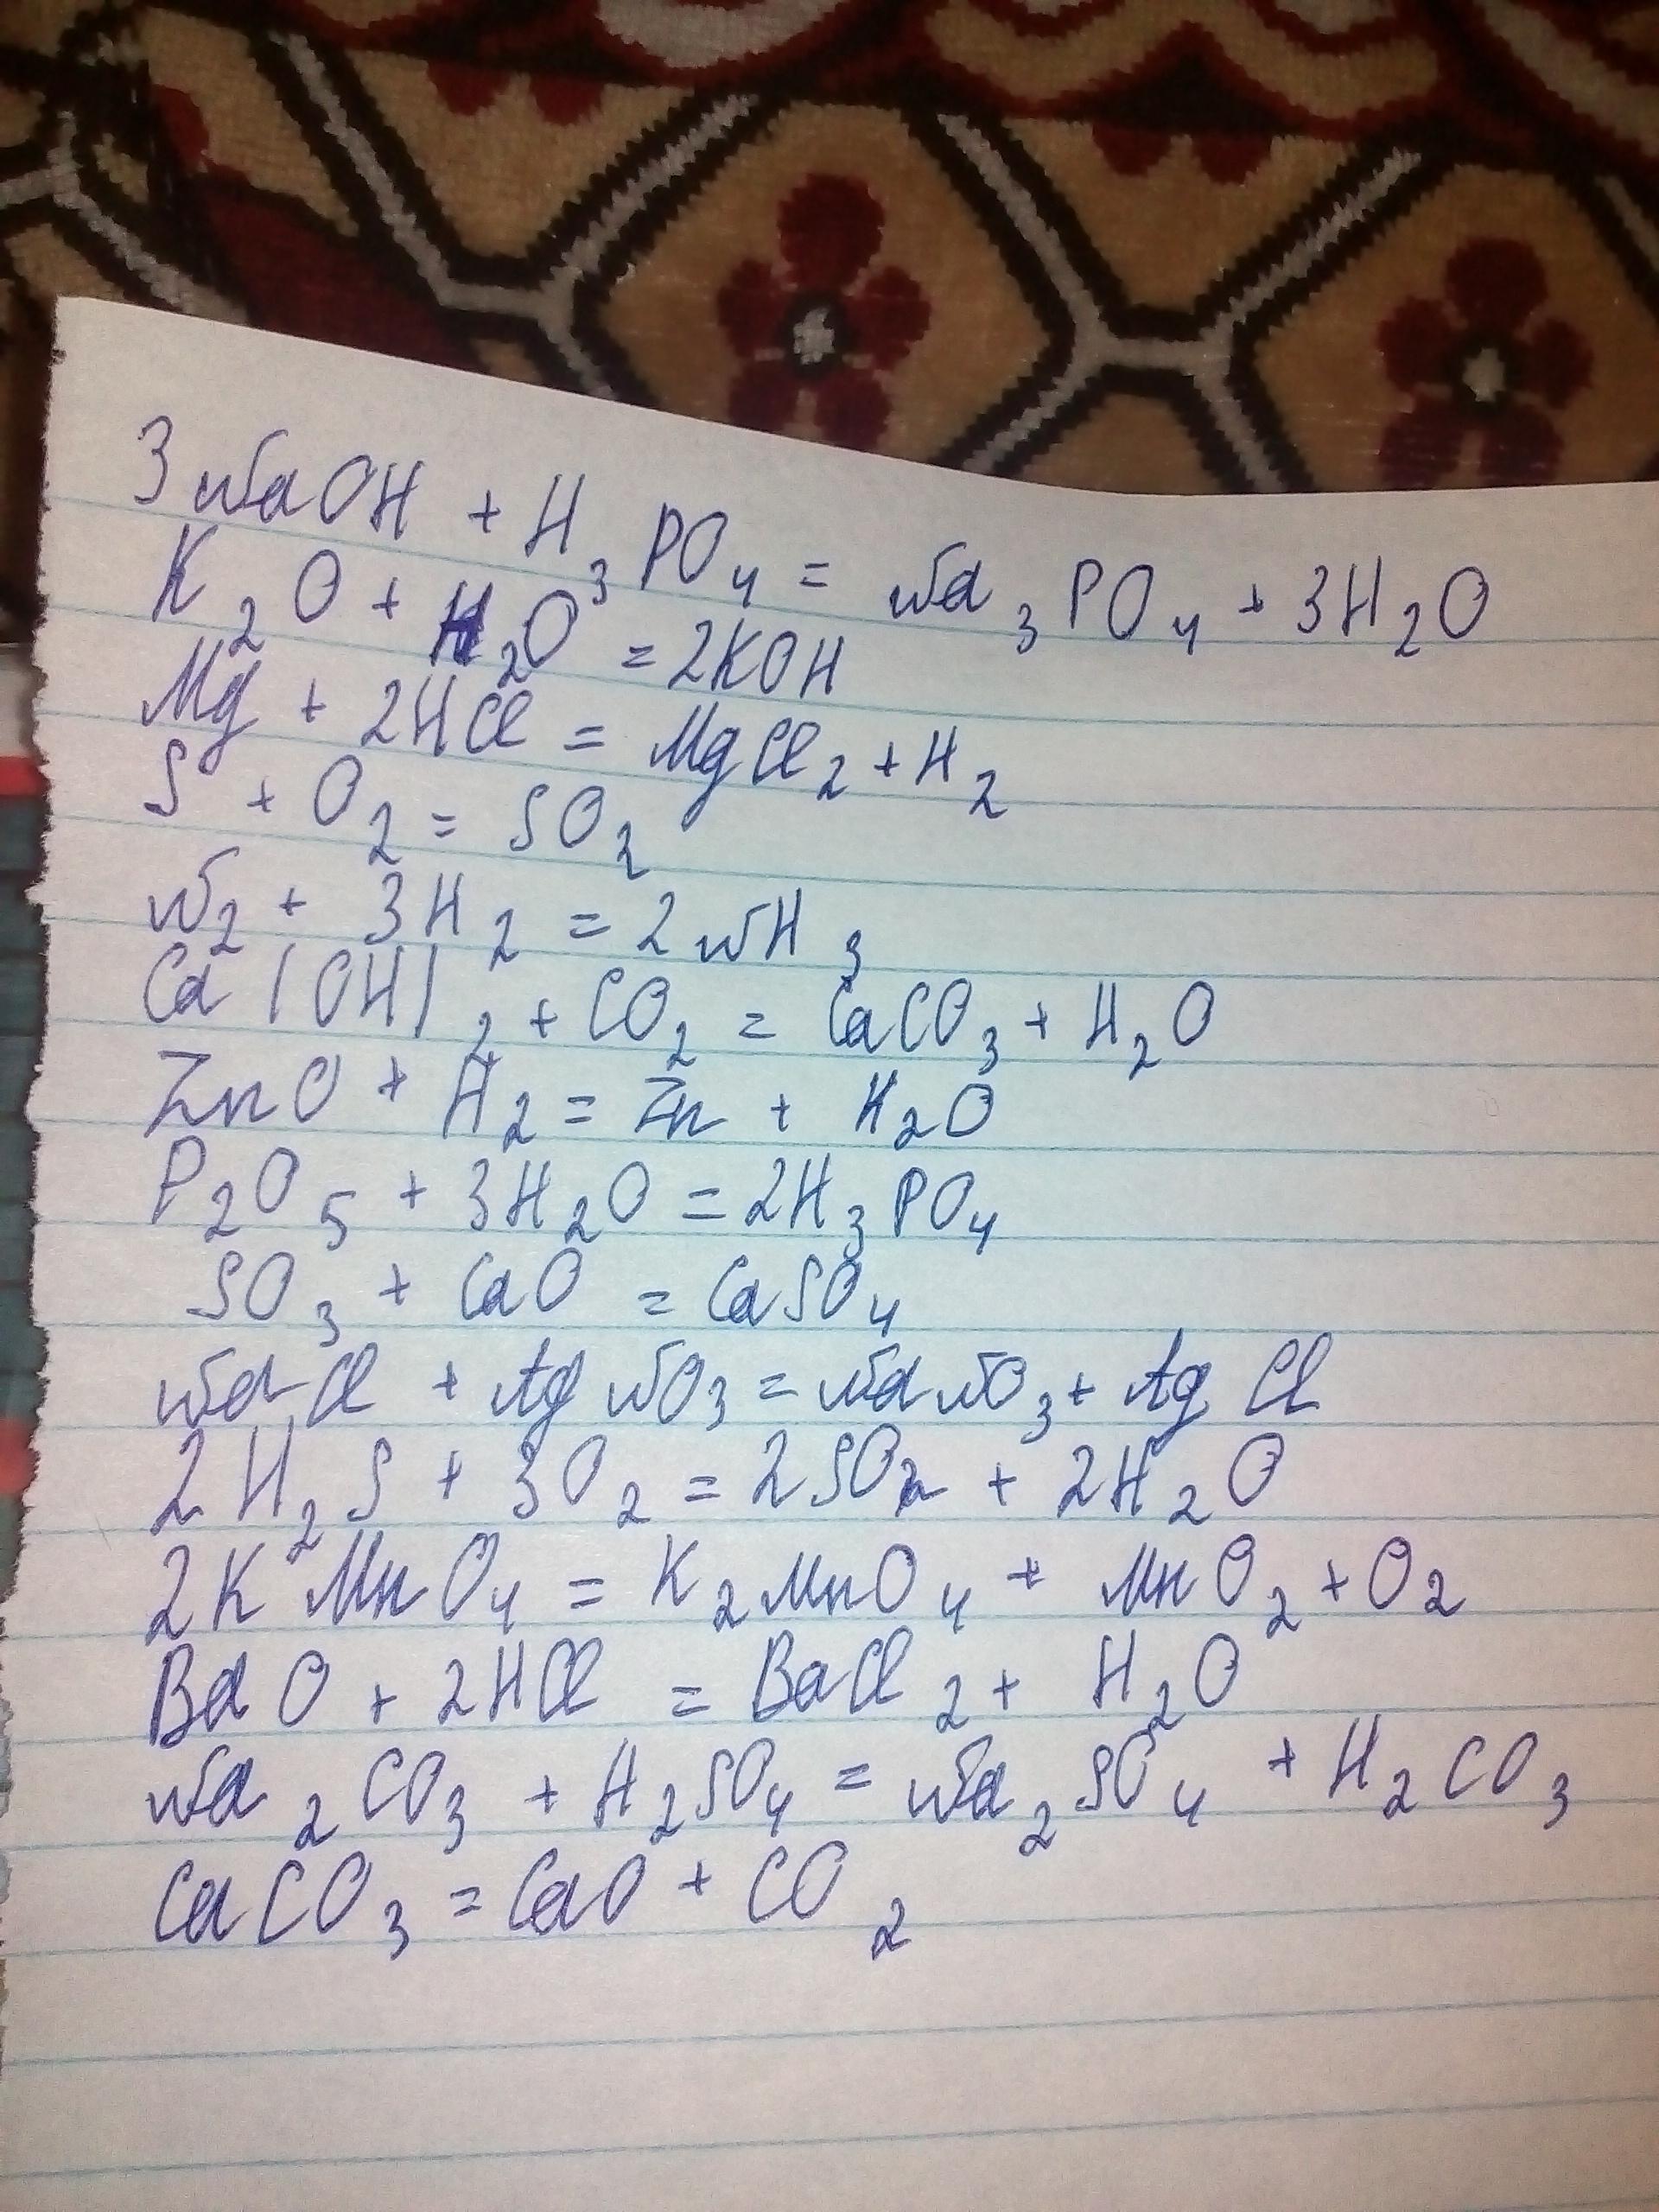 3NaOH + H₃PO₄ = Na₃PO₄ + 3H₂O
K₂O + H₂O = 2KOH
Mg + 2HCl = MgCl₂ + H₂
S + O₂ = SO₂
N₂ + 3H₂ = 2NH₃
Ca(OH)₂ + CO₂ = CaCO₃ + H₂O
ZnO + H₂ = Zn + H₂O
P₂O₅ + 3H₂O = 2H₃PO₄
SO₃ + CaO = CaSO₄
NaCl + AgNO₃ = NaNO₃ + AgCl
2H₂S + 3O₂ = 2SO₂ + 2H₂O
2KMnO₄ = K₂MnO₄ + MnO₂ + O₂
BaO + 2HCl = BaCl₂ + H₂O
Na₂CO₃ + H₂SO₄ = Na₂SO₄ + H₂CO₃
CaCO₃ = CaO + CO₂